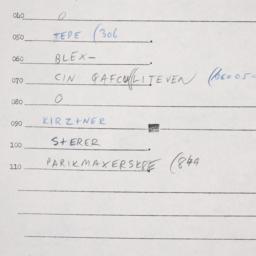 040 0
050 TEPE (306
060 BLEX-
070 CIN GAFCU/LITEVEN (
080 0
090 KIRZTNER
100 STERER
110 PARIKMAXERSKPE (844